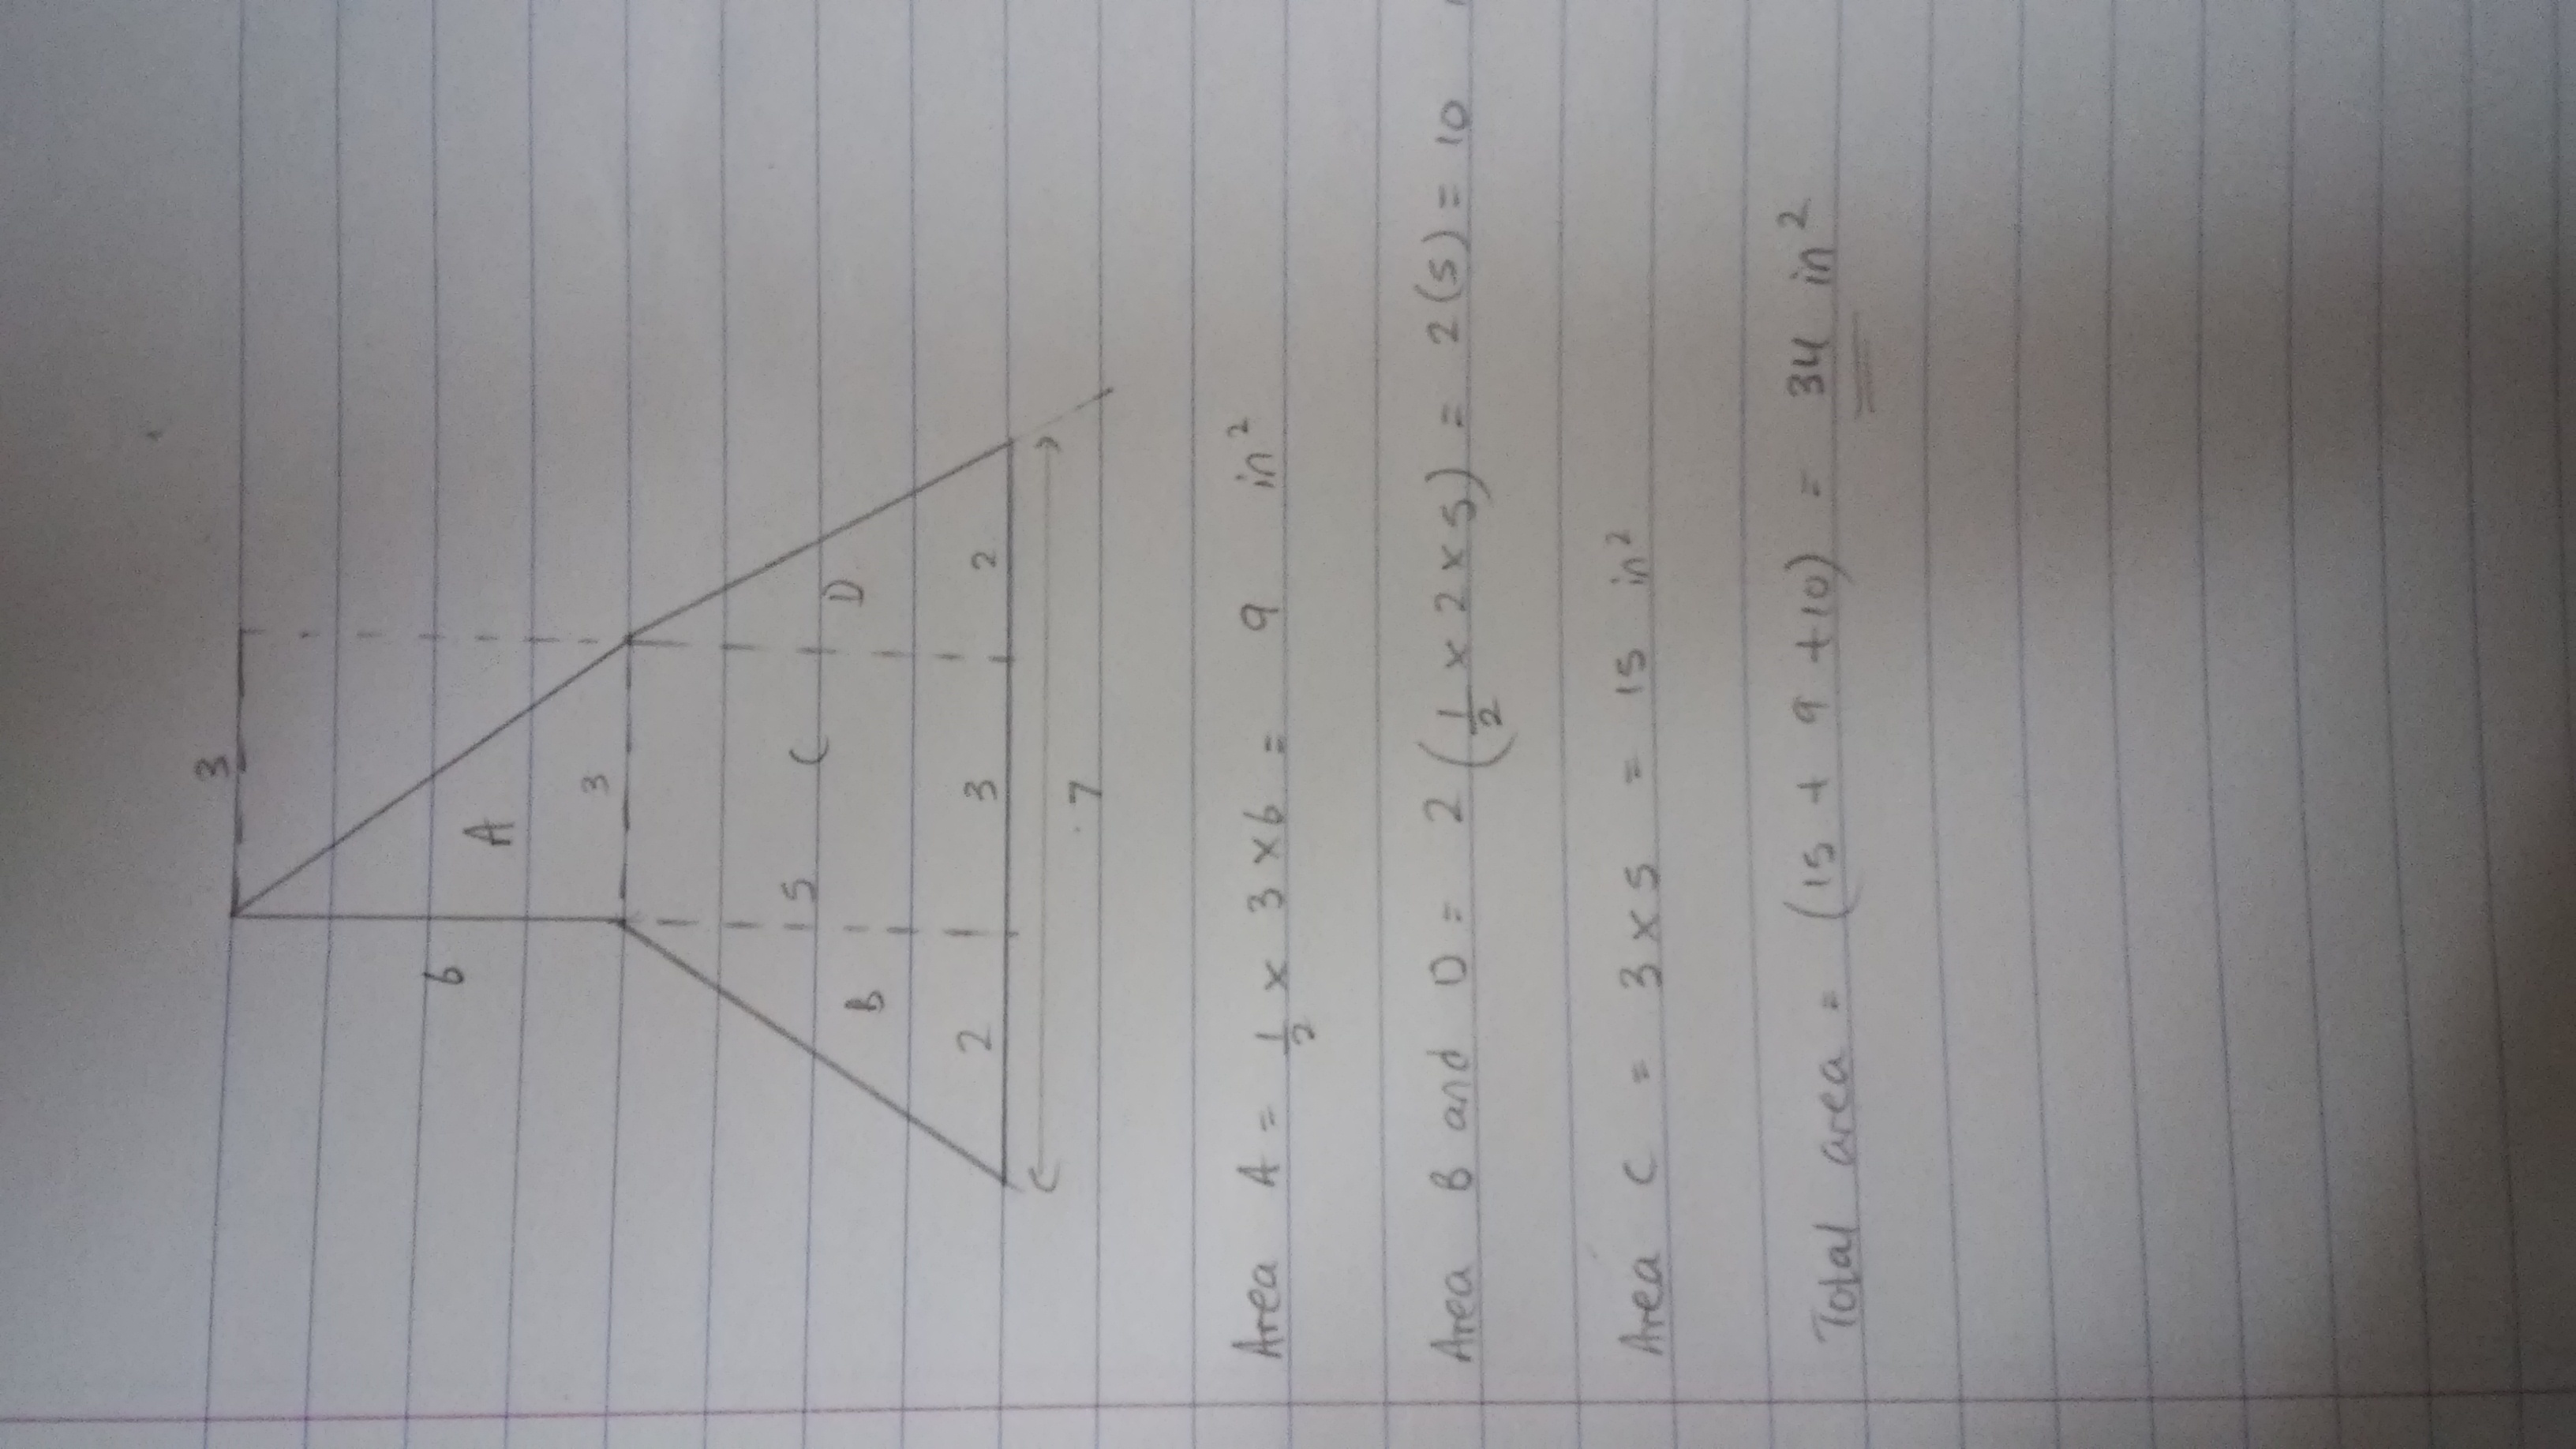 3
6
A
3
5
C
B
D
2
3
2
7
Area A = 1/2 x 3 x 6 = 9 in²
Area B and D = 2 (1/2 x 2 x 5) = 2(5) = 10
Area C = 3 x 5 = 15 in²
Total area = (15 + 9 + 10) = 34 in²